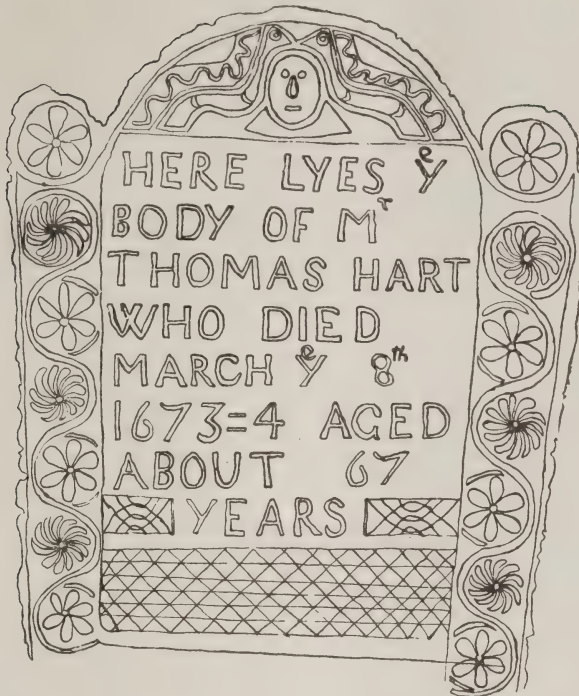 HERE LYES yᵉ
BODY OF Mʳ
THOMAS HART
WHO DIED
MARCH yᵉ 8ᵗʰ
1673=4 AGED
ABOUT 67
YEARS